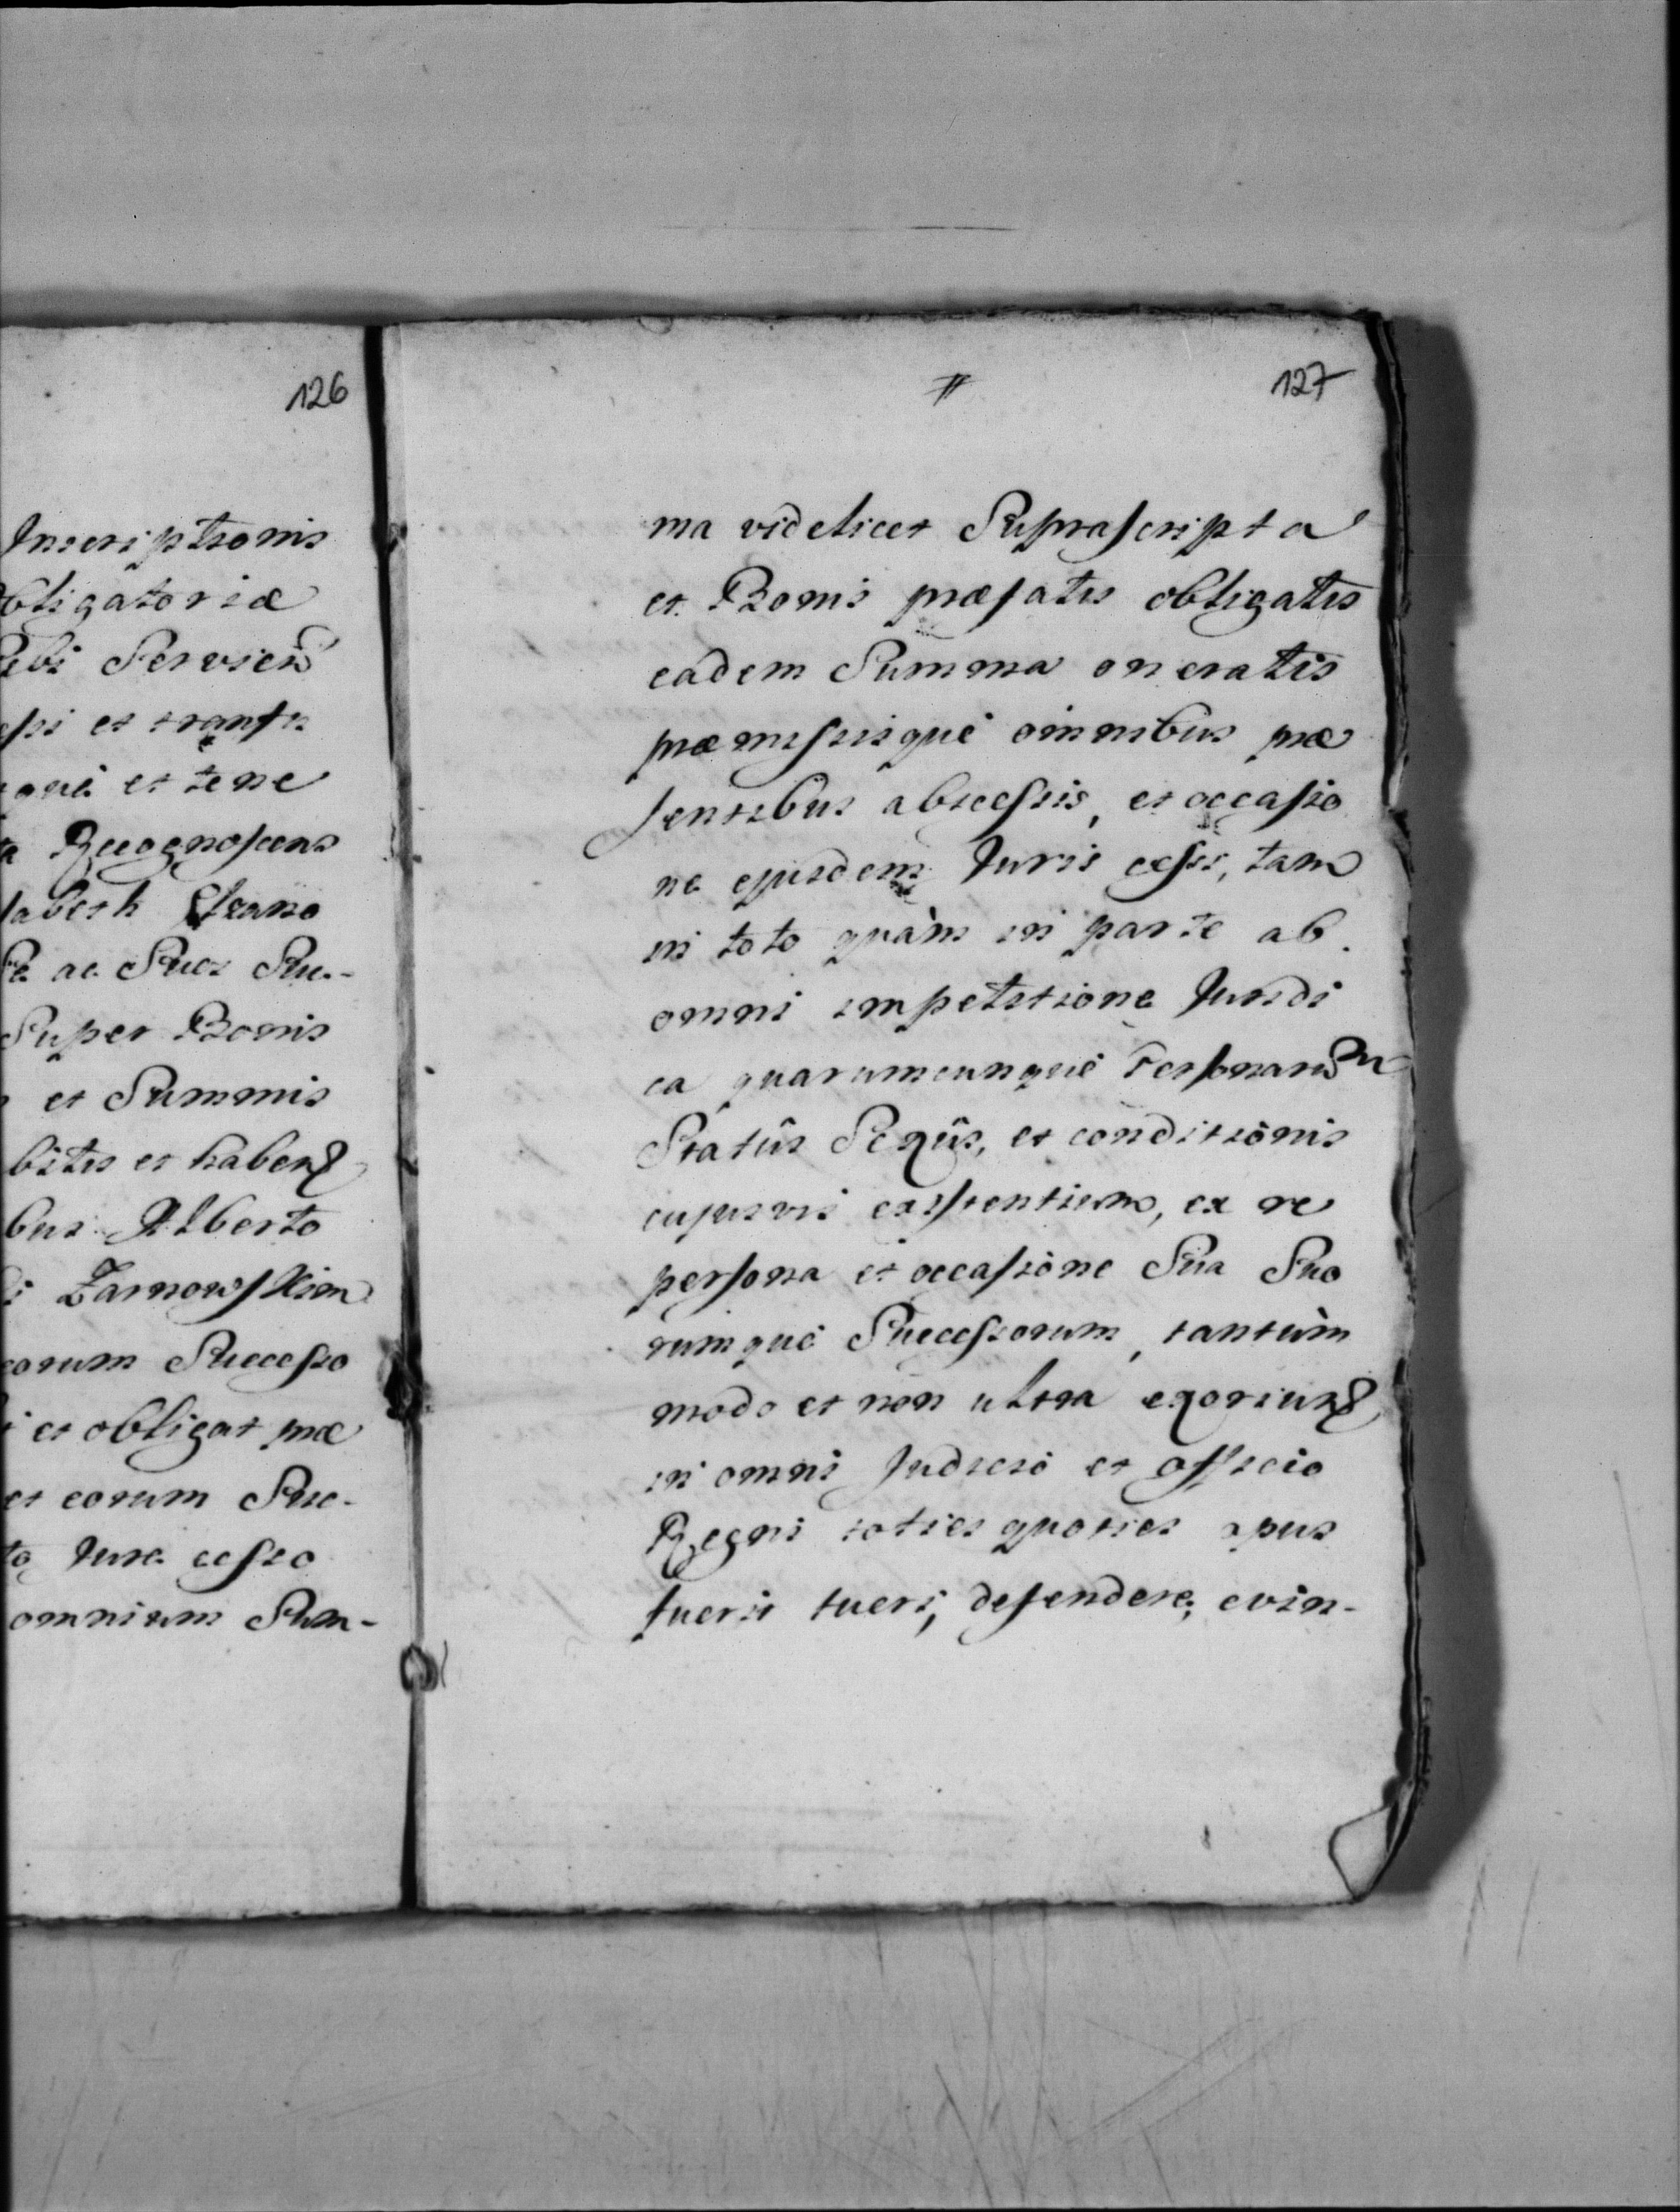 126
Inscriptionis
bligatoriæ
sibi Servien
ssi et transfu
què et tene
Recognoscens
sabeth
ac Suos Suc-
Super Bonis
et Summis
bitis et haben
bus Alberto
Żarnowskim
eorum Successo
et obligat præ
et eorum Suc-
Jure cesso
omnium Sum-
127
ma videlicet Suprascripta
et Bonis præfatis obligatis
eadem Summa oneratis
præmissisquè omnibus præ
sentibus abscessis, et occasio
ne ejusdem Juris cessi, tam
in toto quàm in parte ab
omni impetitione Juridi
ca quarumcunquè Personarum
Statûs Sexûs, et conditionis
cujusvis existentium, ex re
persona et occasione Sua Suo
rumquè Successorum, tantùm
modo et non ultra exoriun
in omni Judicio et officio
Regni toties quoties opus
fuerit tueri, defendere, evin-